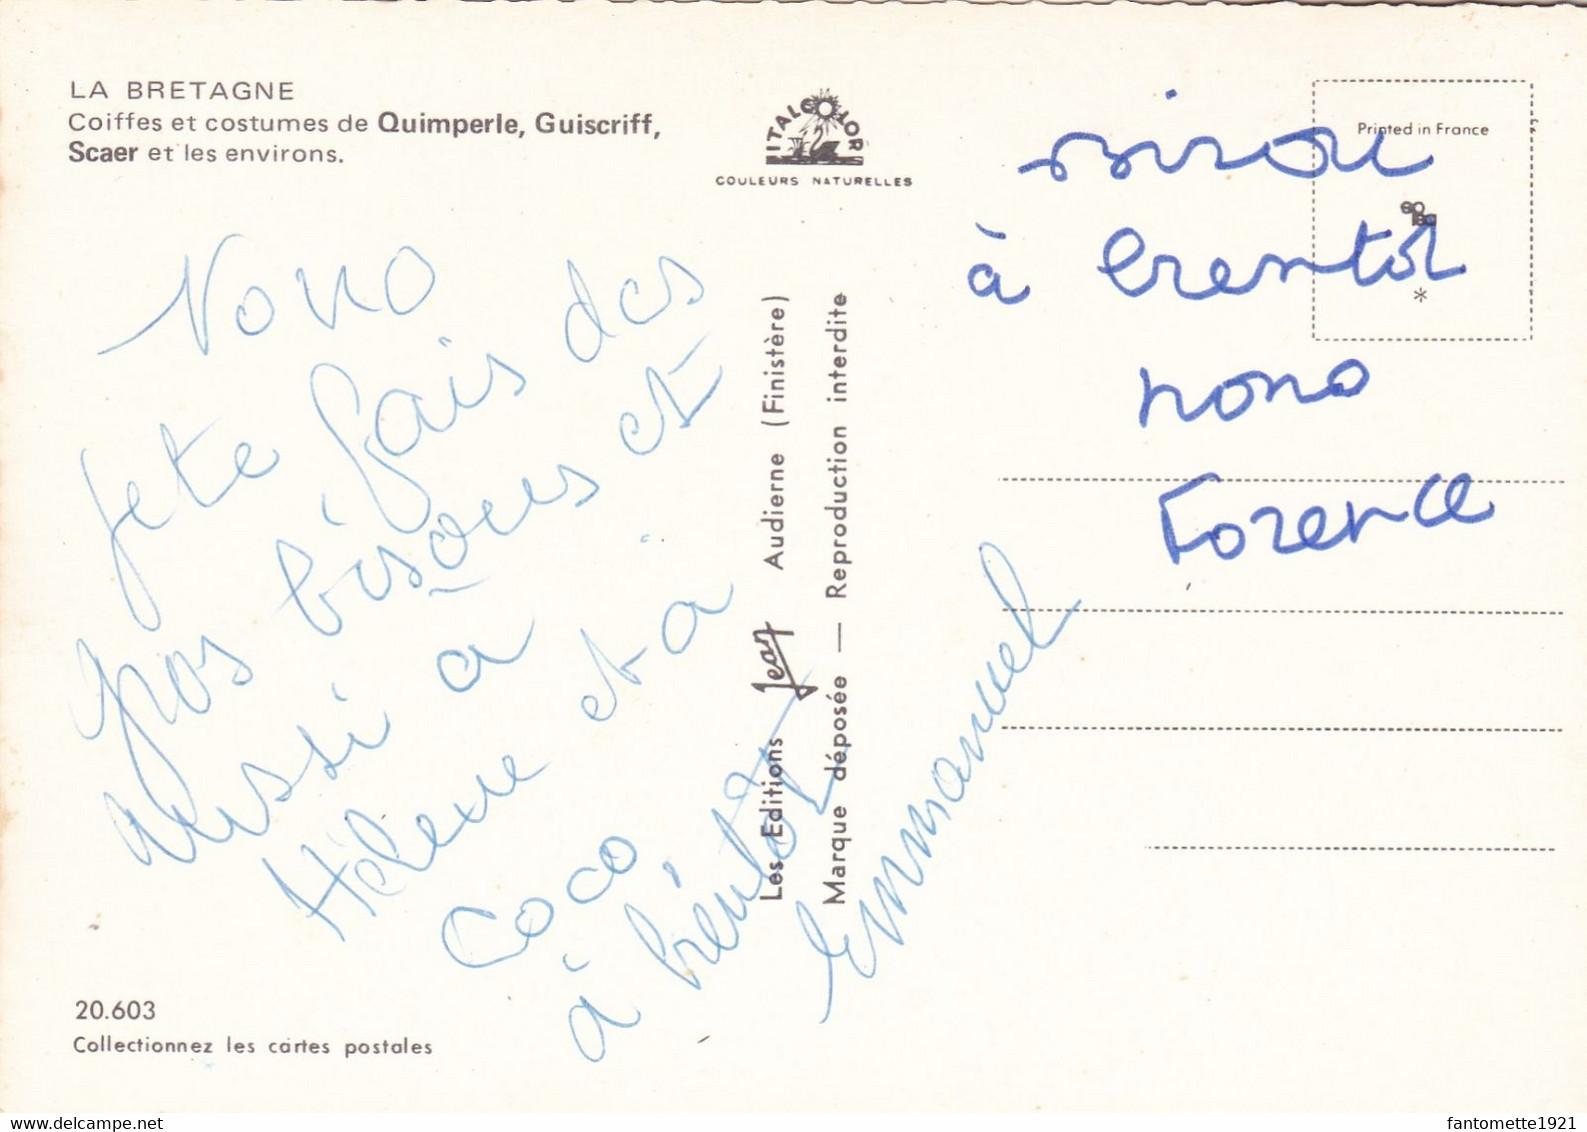 LA BRETAGNE
Coiffes et costumes de Quimperle, Guiscriff,
Scaer et les environs.
ITALCOLOR
COULEURS NATURELLES
Printed in France
*
Nono
je te fais des
gros bisous et
aussi à
Hélène et à
Coco
à bientot
Emmanuel
Les Editions Jean Audierne (Finistère)
Marque déposée — Reproduction interdite
à
nono
Forence
20.603
Collectionnez les cartes postales
fantomette1921